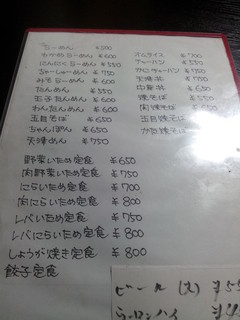 らーめん ¥500
わかめらーめん ¥600
にんにくらーめん ¥550
ちゃーしゅーめん ¥750
みそらーめん ¥600
たんめん ¥550
玉子たんめん ¥600
わんたんめん ¥600
五目そば ¥650
ちゃんぽん ¥650
天津めん ¥750
オムライス ¥700
チャーハン ¥550
かにチャーハン ¥750
天津丼
中華丼
焼そば
肉焼そば
五目焼そば
かた焼そば
野菜いため定食 ¥650
肉野菜いため定食 ¥750
にらいため定食 ¥700
肉にらいため定食 ¥800
レバいため定食 ¥750
レバにらいため定食 ¥800
しょうが焼き定食 ¥800
餃子定食
ビール (大) ¥55
ウーロンハイ